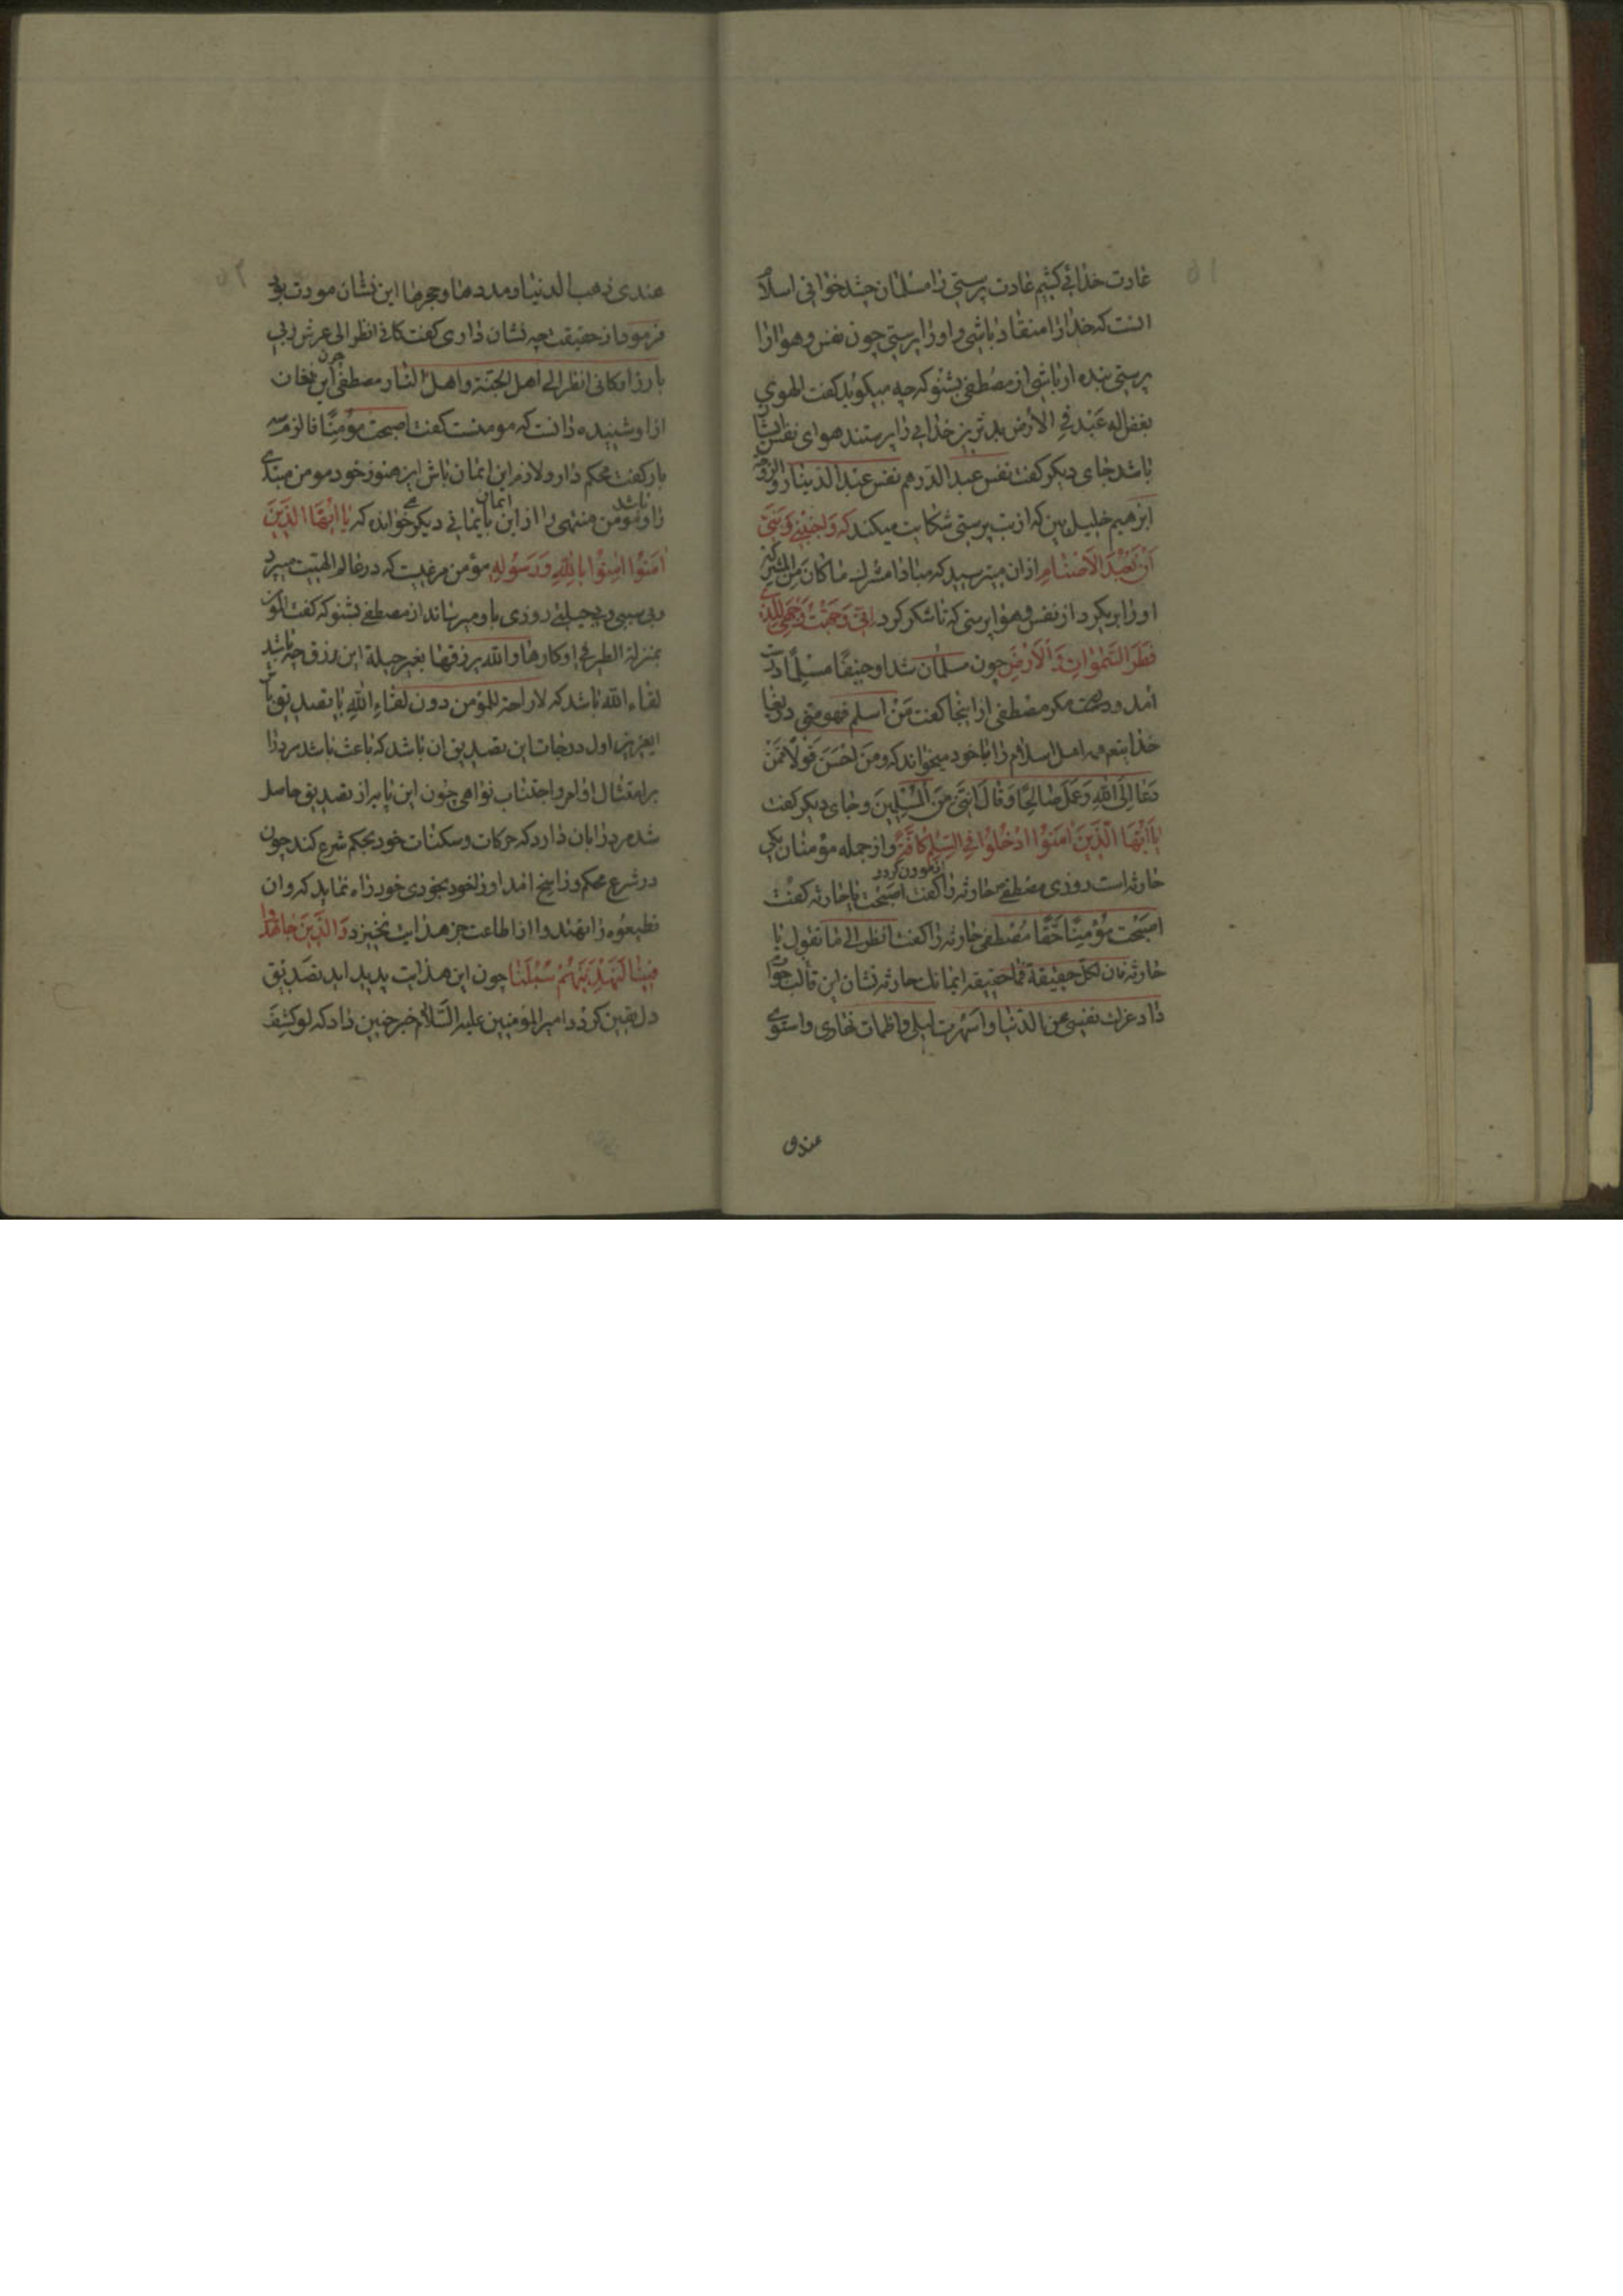 عادت خدائی کنیم عادت پرستی را مسلمان چند خوانی اسلام
انست که خدا را منقاد باشی و او را پرستی چون نفس و هوا را
پرستی بنده او باشی از مصطفی بشنو که چه میگوید گفت الهوی
بغض اله عبد فی الارض بدترین خدایی را پرستند هوای نفس ایشان
باشد جای دیگر گفت نفس عبد الدرهم نفس عبد الدینار و الزوجه
ابرهیم خلیل بین که از بت پرستی شکایت میکند که وَاجْنُبْنِی وَبَنِیَّ
اَنْ نَعْبُدَ الاَصْنَامَ ازان میترسید که مبادا مشرک ما کان مِنَ المشرکین
او را بریکرد از نفس و هوا پرستی که تا شکر کرد اِنّی وَجَّهْتُ وَجْهِیَ لِلَّذی
فَطَرَ السَّمٰواتِ وَ الاَرْضَ چون مسلمان شد او حنیفًا مسلمًا درست
امد و مکر مصطفی از اینجا گفت مَنْ اسلم فهو منی دریغا
خدا یتعم همه اهل اسلام را با خود میخواند که ومَنْ احْسَنَ قَوْلًا مِمَّنْ
دَعَا اِلَی اللهِ وَعَمِلَ صَالِحًا وَقَالَ اِنَّنِی مِنَ الْمُسْلِمِینَ و جای دیگر گفت
یَا اَیُّهَا الَّذِینَ اٰمَنُوا ادْخُلُوا فِی السِّلْمِ کَافَّةً و از جمله مؤمنان یکی
حارثه است روزی مصطفی ص حارثه را گفت اصبحت یا حارثه گفت
اصبَحْت مُؤْمِنًا حَقًّا مُصْطَفی حارثه را گفت انظر الی ما تقول یا
حارثه فان لکل حقیقة فما حقیقه ایمانک حارثه نشان این قالب جوا
داد عزلت نفسی عن الدنیا و اسهرت لیلی و اظمات نهاری و استوی
عندی
عندی ذهب الدنیا و مددها و حجرها این نشان مودت بود
فرمود از حقیقت چه نشان داری گفت کانی انظر الی عرش ربی
بارزا و کانی انظر الی اهل الجنة و اهل النار مصطفی چون این نغان
ازاو شنیده دانست که مومنست گفت اصبحت مؤمنًا فالزمه
بار گفت محکم دار و لازم این ایمان باش این هنوز خود مومن مبتدی
را باشد و مؤمن منتهی را از این ایمان بایمانی دیگر خوانند که یا ایّها الذین
اٰمَنُوا اٰمِنُوا بِاللهِ وَرَسُولِهِ مؤمن مرغیست که در عالم الهیت میپرد
وبی سببی وبی حیلتی روزی باو میرساند از مصطفی بشنو که گفت المؤمن
بمنزلة الطیر فی اوکارها و الله یرزقها بغیر حیلة این رزق چه باشد
لقاء الله باشد که لا راحة للمؤمن دون لقاء اللهِ یا تصدیق
ایعزیز اول درجات این تصدیق ان باشد که باعث باشد مرد را
بر امتثال اوامر و اجتناب نواهی چون این یا مر از تصدیق حاصل
شد مرد را بان دارد که حرکات و سکنات خود بحکم شرع کند چون
در شرع محکم و راسخ امد او را خود بخودی خود راه نماید که وان
تطیعُوه تهتدوا از طاعت جز هدایت نخیزد وَالَّذِینَ جَاهَدُوا
فِینَا لَنَهْدِیَنَّهُمْ سُبُلَنَا چون این هدایت پدید اید تصدیق
دل یقین کردد امیر المؤمنین علیه السَّلام خبر چنین داد که لو کُشِفَ